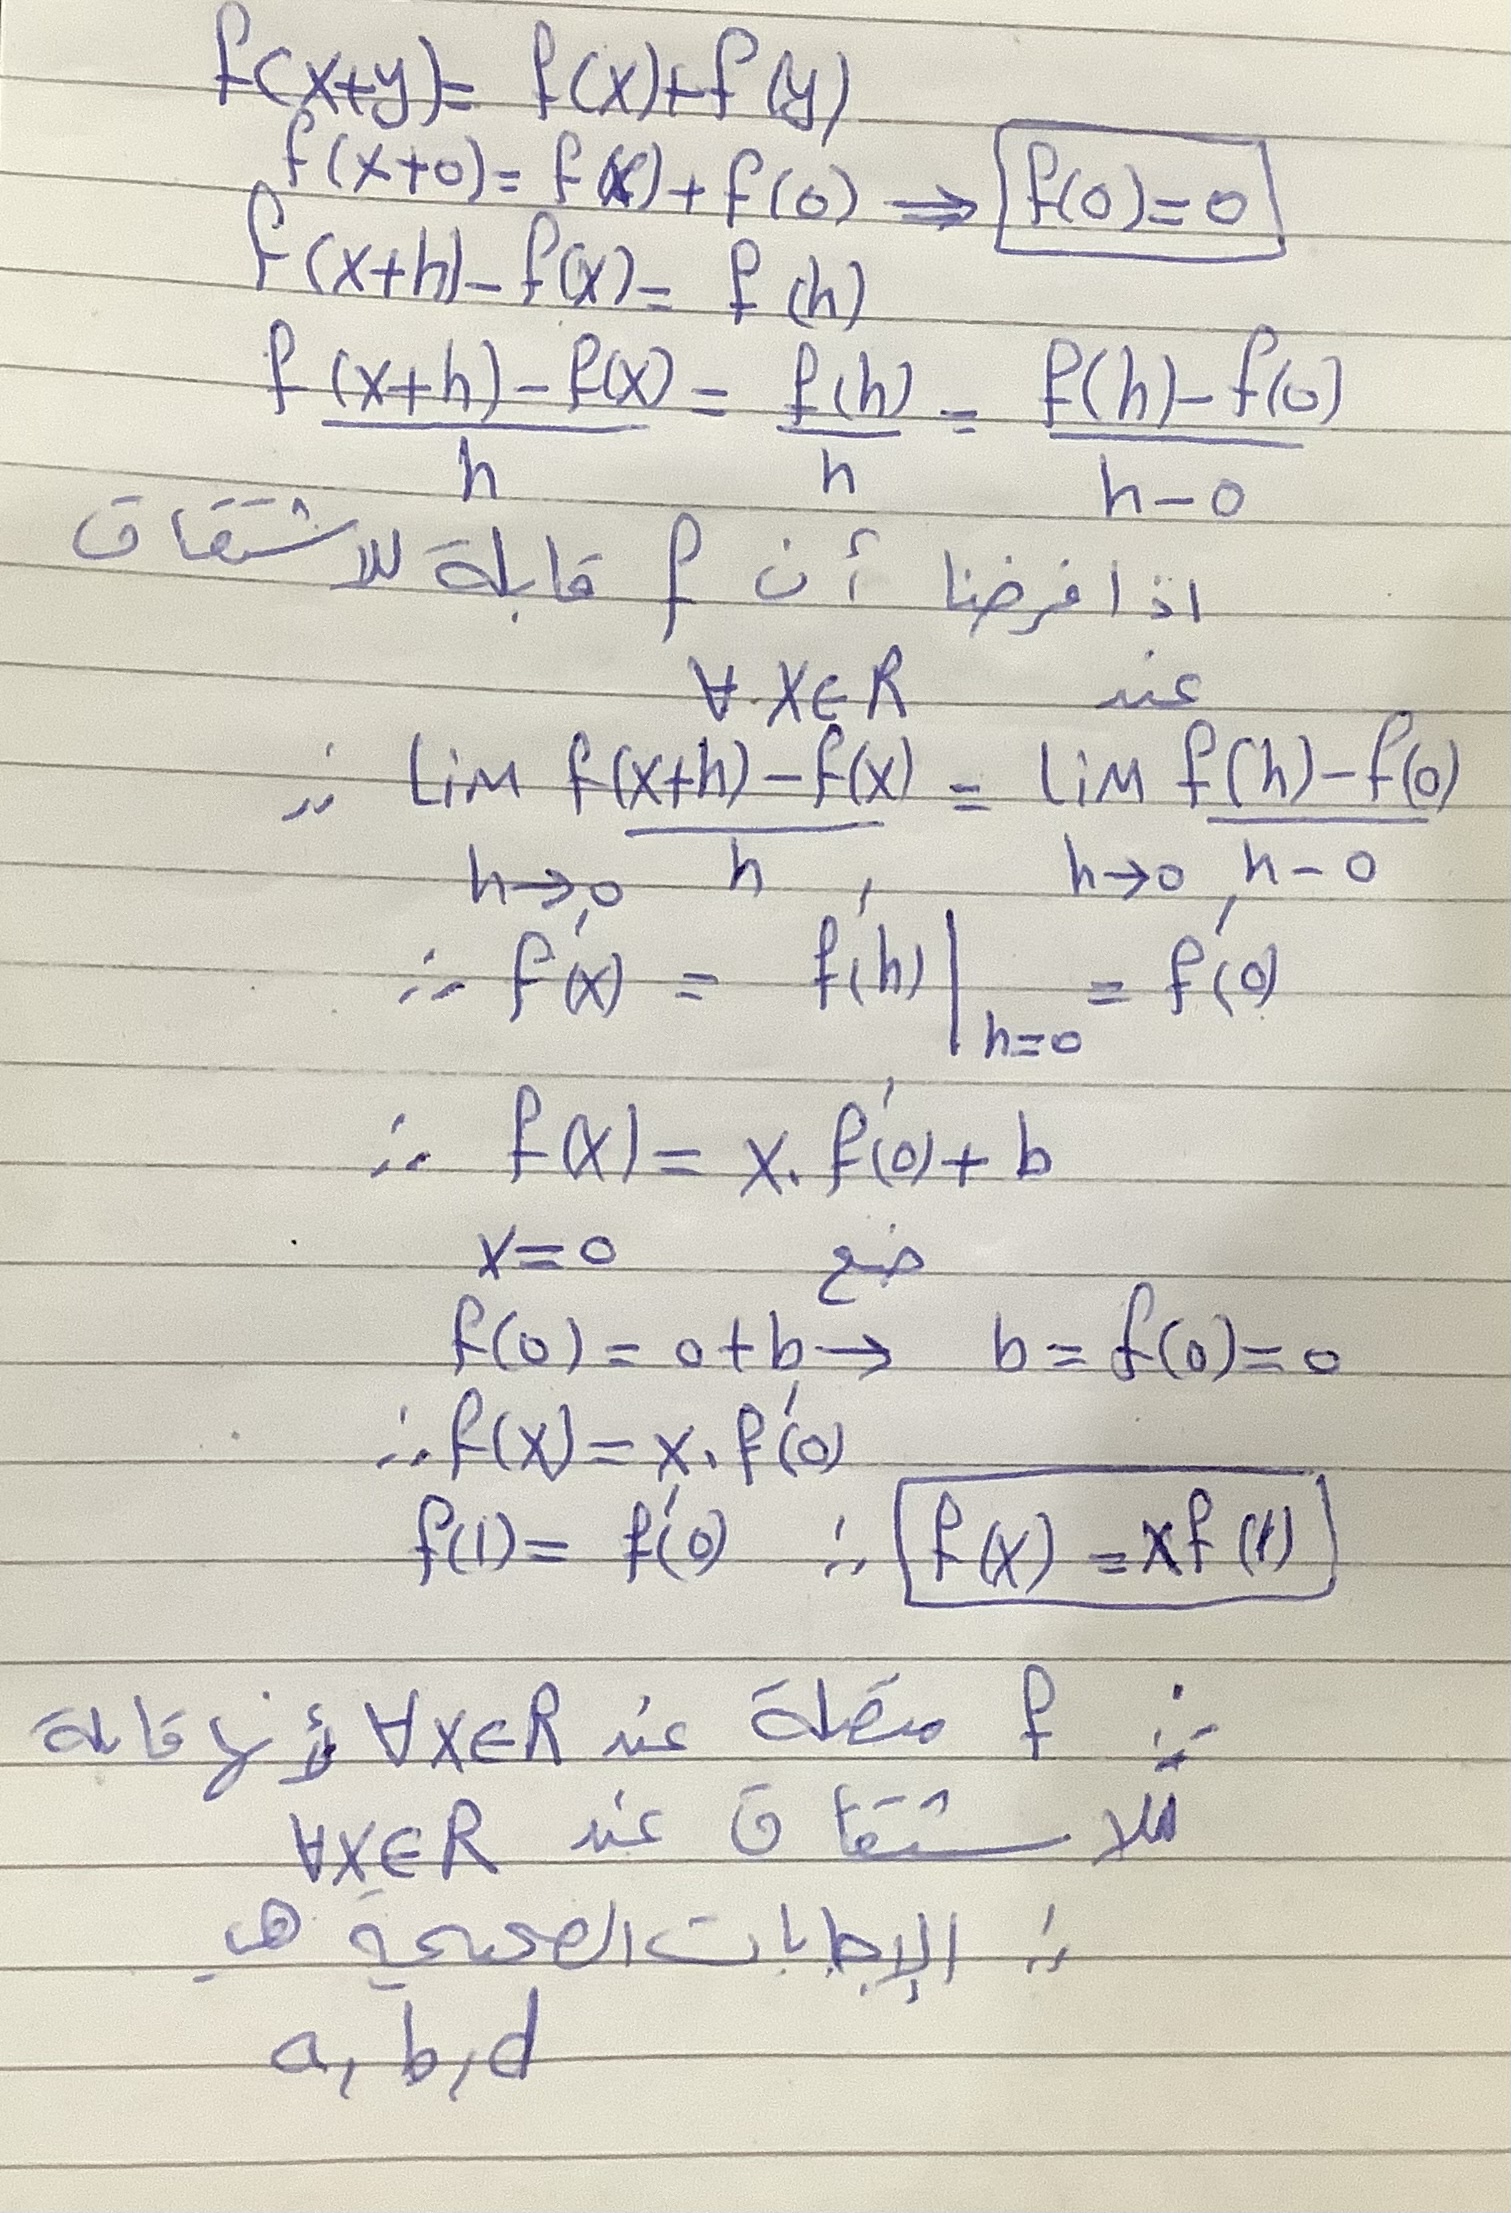 f(x+y)= f(x)+f(y)
f(x+0)= f(x)+f(0) ⇒ f(0)=0
f(x+h)-f(x)= f(h)
f(x+h)-f(x)/h = f(h)/h = f(h)-f(0)/h-0
اذا فرضنا أن f قابلة للاشتقاق
عند ∀ x∈R
∵ Lim h→0 f(x+h)-f(x)/h = Lim h→0 f(h)-f(0)/h-0
∴ f'(x) = f'(h)|h=0 = f'(0)
∴ f(x)= x. f'(0)+ b
ضع x=0
f(0)= 0+b → b= f(0)=0
∴ f(x)= x. f'(0)
f(1)= f'(0) ∴ f(x) =xf(1)
∵ f متصلة عند ∀x∈R لأنها قابلة
للاشتقاق عند ∀x∈R
∴ الإجابات الصحيحة هي
a, b, d